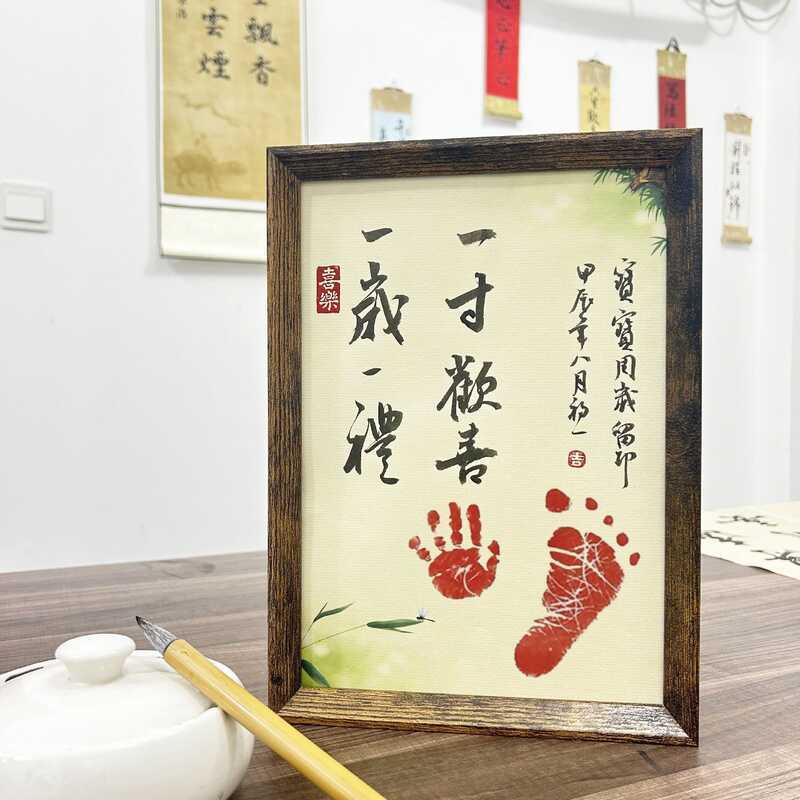 寶寶周歲留印
甲辰年八月初一
吉
一寸歡喜
一歲一禮
喜樂
飄香
雲煙